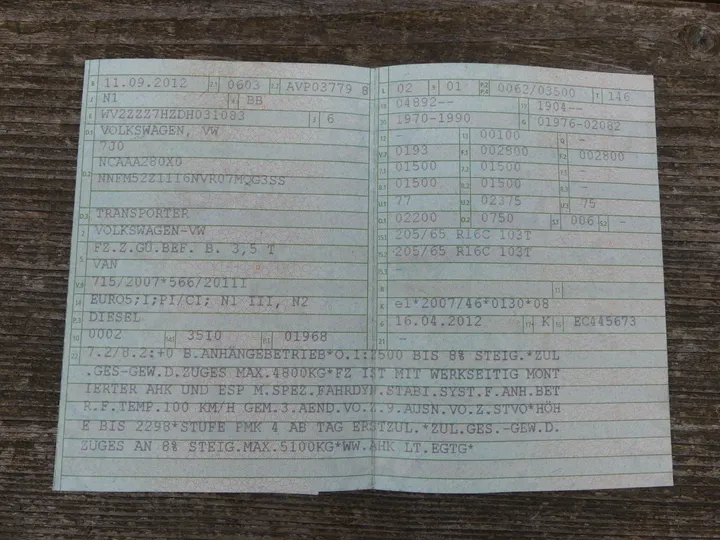 11.09.2012 0603 AVP03779 8
N1 BB
WV2ZZZ7HZDH031083 6
VOLKSWAGEN, VW
7J0
NCAAA280X0
TRANSPORTER
VOLKSWAGEN-VW
FZ.Z.GÜ.BEF. B. 3,5 T
VAN
715/2007*566/2011I
EURO5;I;PI/CI; N1 III, N2
DIESEL
0002 3510 01968
02 01 0062/03500 146
04892-- 1904--
1970-1990 01976-02082
- 00100 -
0193 002800 002800
01500 01500 -
01500 01500 -
77 02375 75
02200 0750 006 -
205/65 R16C 103T
205/65 R16C 103T
-
-
e1*2007/46*0130*08
16.04.2012 K EC445673
-
7.2/8.2:+0 B.ANHÄNGEBETRIEB*O.1:2500 BIS 8% STEIG.*ZUL
.GES-GEW.D.ZUGES MAX.4800KG*FZ IST MIT WERKSEITIG MONT
IERTER AHK UND ESP M.SPEZ.FAHRDYN.STABI.SYST.F.ANH.BET
R.F.TEMP.100 KM/H GEM.3.AEND.VO.Z.9.AUSN.VO.Z.STVO*HÖH
E BIS 2298*STUFE PMK 4 AB TAG ERSTZUL.*ZUL.GES.-GEW.D.
ZUGES AN 8% STEIG.MAX.5100KG*WW.AHK LT.EGTG*